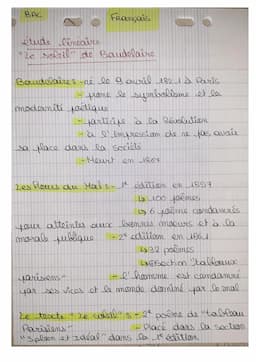 BAC
Français
étude linéaire
"Le soleil" de Baudelaire
Baudelaire :- né le 9 avril 1821 à Paris
- prône le symbolisme et la
modernité poétique
- participe à la Révolution
- a l'impression de ne pas avoir
sa place dans la société
- Meurt en 1867
Les Fleurs du Mal :- 1e édition en 1857
↳ 100 poèmes
↳ 6 poème condamnés
pour atteintes aux bonnes moeurs et à la
morale publique - 2e édition en 1861
↳ 32 poèmes
↳ section "tableaux
parisiens" - l'homme est condamné
par ses vices et le monde dominé par le mal
Le texte "Le soleil" :- 2e poème de "tableau
Parisiens" - Placé dans la section
"Spleen et Idéal" dans la 1e édition